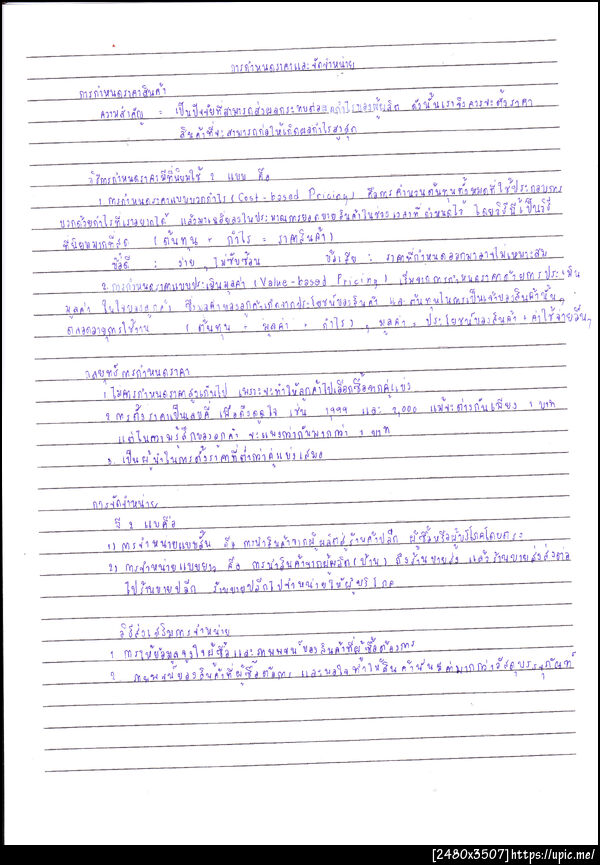 การกำหนดราคาและจัดจำหน่าย
การกำหนดราคาสินค้า
ความสำคัญ = เป็นปัจจัยที่สามารถส่งผลกระทบต่อ กำไรของผู้ผลิต ดังนั้นเราจึงควรจะตั้งราคา
สินค้าที่จะสามารถก่อให้เกิดผลกำไรสูงสุด
วิธีการกำหนดราคาที่นิยมใช้ 2 แบบ คือ
1. การกำหนดราคาแบบบวกกำไร (Cost-based Pricing) คือการคำนวนต้นทุนทั้งหมดที่ใช้ประกอบการ
บวกด้วยกำไรที่เราอยากได้ แล้วมาเฉลี่ยลงในประมาณการยอดขายสินค้าในช่วงเวลาที่กำหนดไว้ โดยวิธีนี้เป็นวิธี
ที่นิยมมากที่สุด (ต้นทุน + กำไร = ราคาสินค้า)
ข้อดี : ง่าย , ไม่ซับซ้อน ข้อเสีย : ราคาที่กำหนดออกมาอาจไม่เหมาะสม
2. การกำหนดราคาแบบประเมินมูลค่า (Value-based Pricing) เริ่มจากการกำหนดราคาด้วยการประเมิน
มูลค่า ในใจของลูกค้า ซึ่งมูลค่าของลูกค้าเกิดจากประโยชน์ของสินค้า และต้นทุนในการเป็นเจ้าของสินค้านั้นๆ
ตลอดอายุการใช้งาน (ต้นทุน - มูลค่า = กำไร) , มูลค่า = ประโยชน์ของสินค้า + ค่าใช้จ่ายอื่นๆ
กลยุทธ์การกำหนดราคา
1. ไม่ควรกำหนดราคาสูงเกินไป เพราะจะทำให้ลูกค้าไปเลือกซื้อจากคู่แข่ง
2. การตั้งราคาเป็นเลขคี่ เพื่อดึงดูดใจ เช่น 1,999 และ 2,000 แม้จะต่างกันเพียง 1 บาท
แต่ในความรู้สึกของลูกค้า จะแพงกว่ากันมากกว่า 1 บาท
3. เป็นผู้นำในการตั้งราคาที่ต่ำกว่าคู่แข่งเสมอ
การจัดจำหน่าย
มี 2 แบบคือ
1) การจำหน่ายแบบสั้น คือ การนำสินค้าจากผู้ผลิตสู่ร้านค้าปลีก ผู้ซื้อหรือผู้บริโภคโดยตรง
2) การจำหน่ายแบบยาว คือ การนำสินค้าจากผู้ผลิต (บ้าน) ถึงร้านขายส่ง แล้วร้านขายส่งส่งต่อ
ไปร้านขายปลีก ร้านขายปลีกไปจำหน่ายให้ผู้บริโภค
วิธีส่งเสริมการจำหน่าย
1. การให้ข้อมูลจูงใจผู้ซื้อและภาพพจน์ของสินค้าที่ผู้ซื้อต้องการ
2. ภาพพจน์ของสินค้าที่ผู้ซื้อต้องการ และพอใจ ทำให้สินค้านั้นมีค่ามากกว่าวัสดุบรรจุภัณฑ์
[2480x3507]https://upic.me/